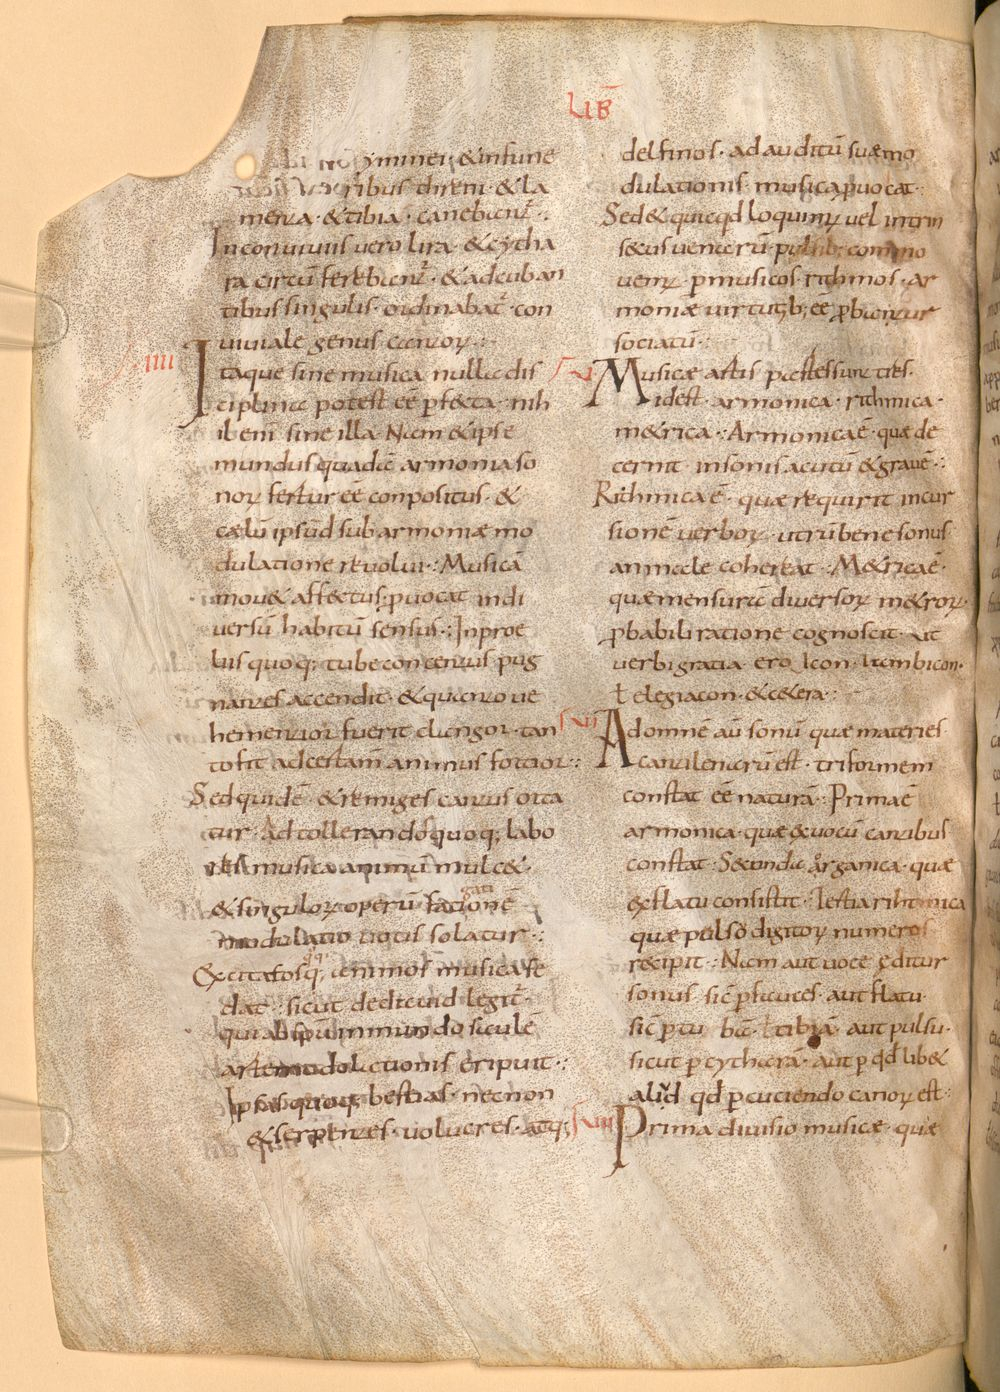 LIƁ
yminei · & in fune
ribus threni · & la
menta · & tibia · canebant᷑ ·:
In conuiuiis uero lira · & cytha
ra circū ferebant᷑ · & ad cuban
tibus singulis · ordinabat᷑ · con
uiuiale genus cantoꝝ ·:
IIII
Itaque sine musica nulla dis
ciplina potest eē ꝑfecta · nih
il enī sine illa · Nam & ipse
mundus quadā armonia so
noꝝ fertur eē conpositus · &
cælū ipsūd sub armoniæ mo
dulatione reuolui ·: Musica
mou& affectus · ꝓuocat indi
uersū habitū sensus ·: In proe
liis quoq; tube concentus pug
nantes accendit · & quanto ue
hementior fuerit clangor · tan
to fit ad certam̄ animus fortior ·:
Sed quidē · & remiges cantus orta
tur · Ad tollerandos quoq; labo
res musica animū mulc& ·
& singuloꝝ operū fatigationē
modulatio uotis solatur ·:
Excitatosq; animos musica se
dat · sicut de dauid legit᷑ ·
qui ab spu inmundo saulē
arte modolationis eripuit ·:
Ipsas quoq; bestias · necnon
& serpentes · uolucres · atq;
delfinos · ad auditū suæ mo
dulationis · musica ꝓuocat ·
Sed & quicqd loquimꝝ uel intrin
secus uenarū pulsib; commo
uemꝝ · ꝑ musicos rithmos · ar
moniæ uirtutib; eē ꝓbantur
sociatū ·:
VI
Musicæ artis partes sunt tres ·
id est · armonica · rithmica ·
m&rica ·: Armonica ē · quæ de
cernit · in sonis acutū & grauē ·:
Rithmica ē · quæ requirit incur
sionē uerboꝝ · utrū bene sonus
an male cohereat ·: M&rica ē ·
quæ mensurā diuersoꝝ m&roꝝ ·
ꝓbabili ratione cognoscit · ut
uerbi gratia · eroicon · Iambicon ·
elegiacon · & cetera ·:
VII
Ad omnē aū sonū quæ materies
cantilenarū est · triformem
constat eē naturā ·: Prima ē
armonica · quæ & uocū cantibus
constat · Secunda organica · quæ
ex flatu consistit · Tertia rithmica
quæ pulso digitoꝝ numeros
recipit ·: Nam aut uoce editur
sonus · sic̄ ꝑ fauces · aut flatu ·
sic̄ ꝑ tubā · t tibiā · aut pulsu ·
sicut ꝑ cytharā · aut ꝑ qd lib&
aliud · qd ꝑcuciendo canoꝝ est ·
VIII
Prima diuisio musicæ · quæ